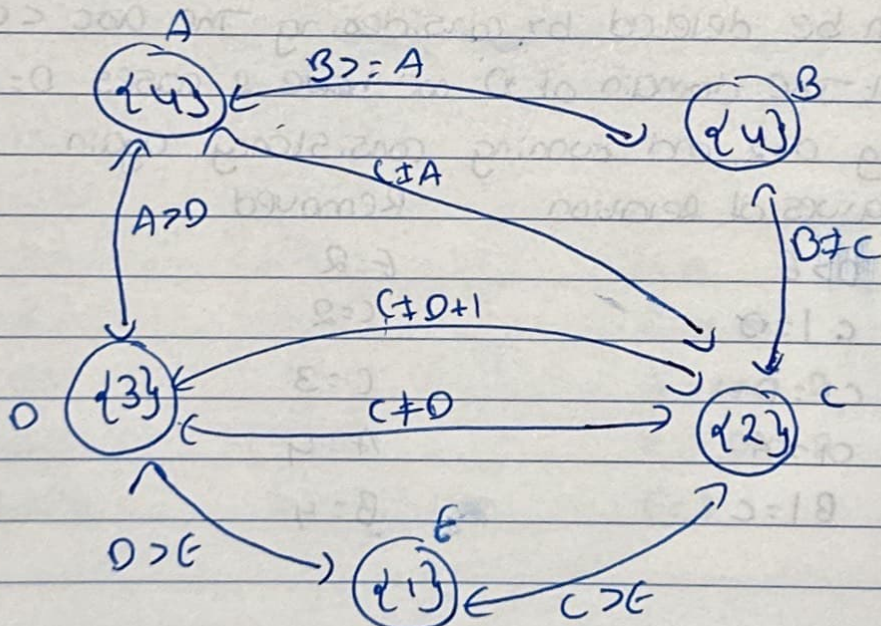 A
{4}
B>=A
B
{4}
C≠A
A>D
B≠C
C≠D+1
D
{3}
C≠D
C
{2}
D>E
E
{1}
C>E